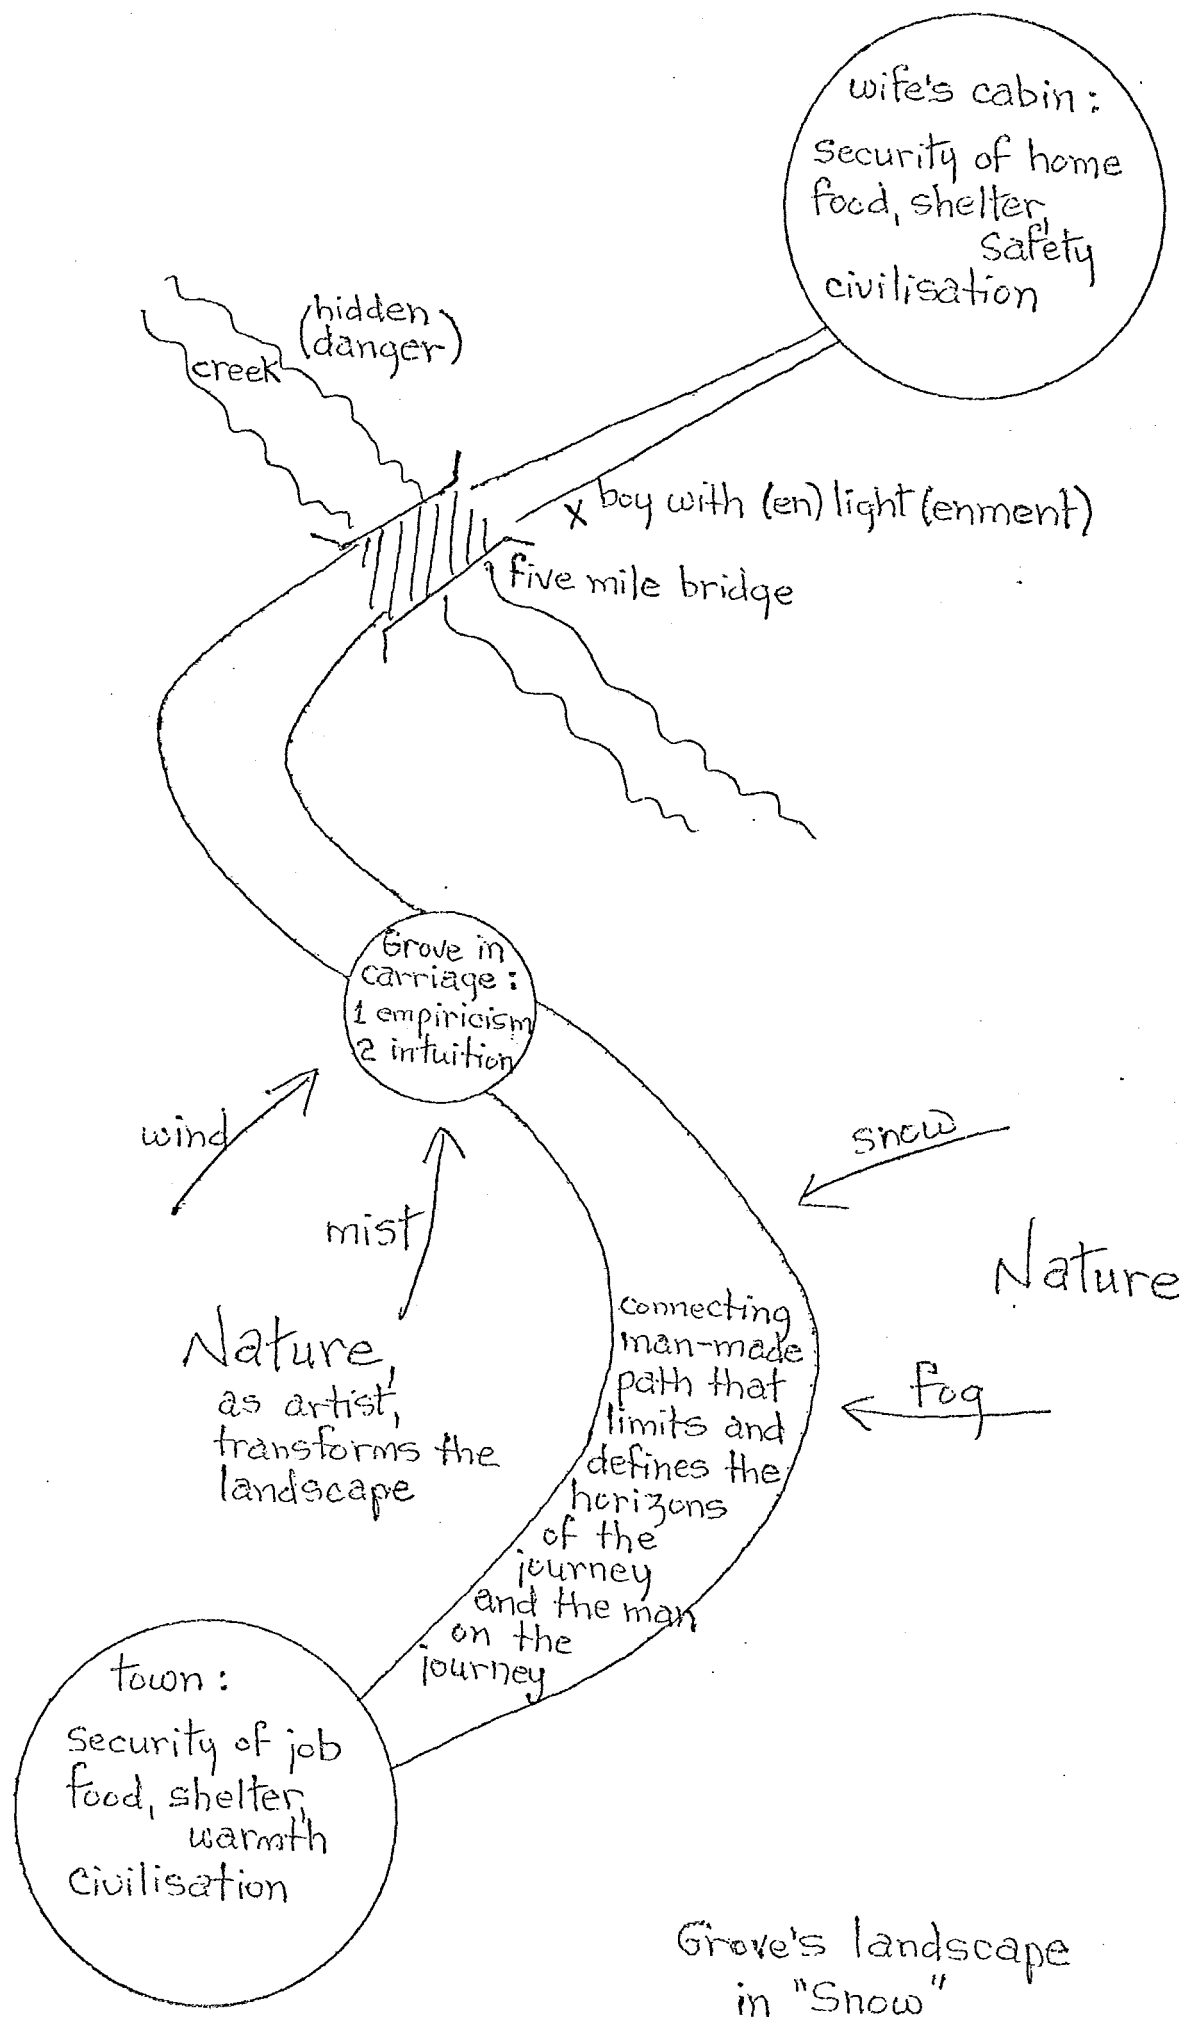 wife's cabin :
security of home
food, shelter,
safety
civilisation
(hidden
danger)
creek
x boy with (en) light (enment)
five mile bridge
Grove in
carriage :
1 empiricism
2 intuition
wind
mist
snow
Nature
fog
Nature,
as artist,
transforms the
landscape
connecting
man-made
path that
limits and
defines the
horizons
of the
journey
and the man
on the
journey
town :
security of job
food, shelter,
warmth
civilisation
Grove's landscape
in "Snow"